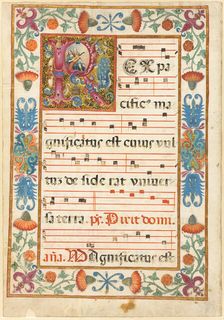 REX pa
cificus ma
gnificatus est cuius vul
tum desiderat univer
sa terra. ps. Dixit domi.
aña. Magnificatus est